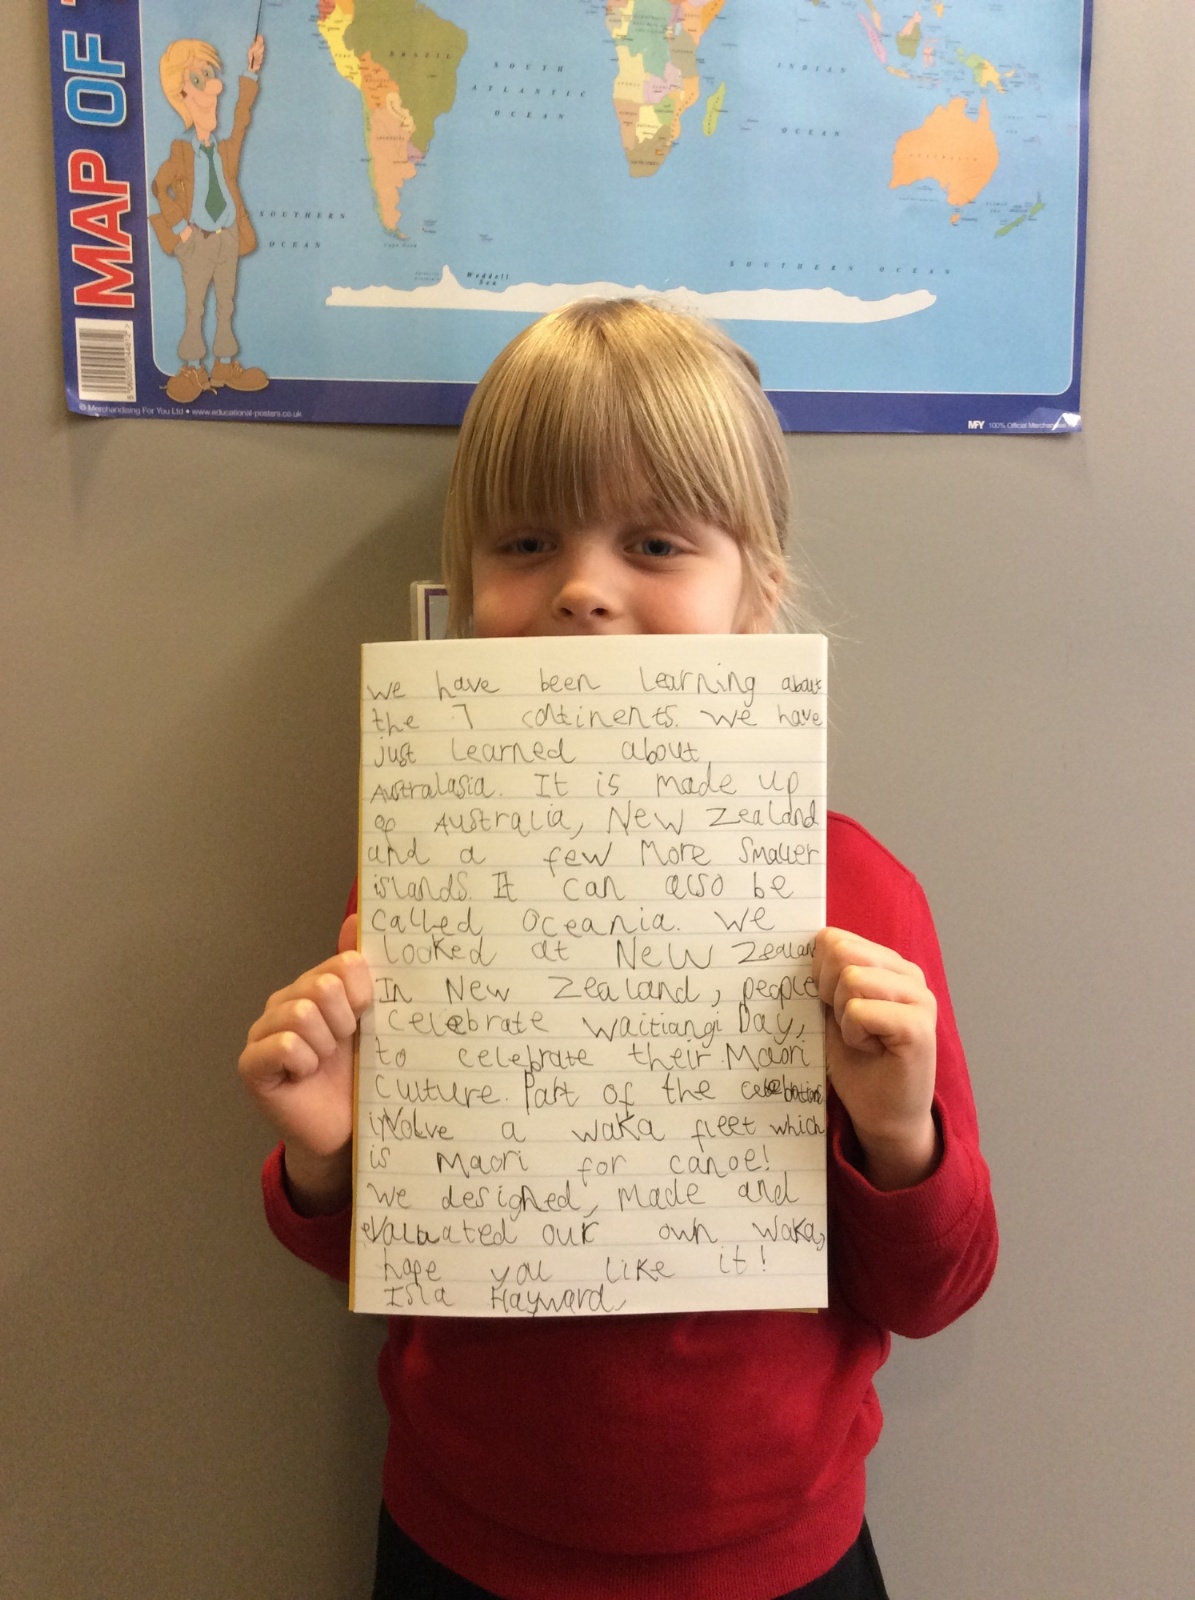 MAP OF
BRAZIL
SOUTH
ATLANTIC
OCEAN
INDIAN
OCEAN
AUSTRALIA
SOUTHERN
OCEAN
Weddell
Sea
SOUTHERN OCEAN
© Merchandising For You Ltd • www.educational-posters.co.uk
MFY 100% Official Merchandise
we have been learning about
the 7 continents. We have
just learned about
Australasia. It is made up
of Australia, New Zealand
and a few More Smaller
islands. It can also be
called Oceania. We
looked at New Zealand
In New Zealand, people
celebrate Waitiangi Day,
to celebrate their Maori
Culture. Part of the celebrations
involve a waka fleet which
is Maori for canoe!
We designed, made and
evaluated our own waka,
hope you like it!
Isla Hayward,